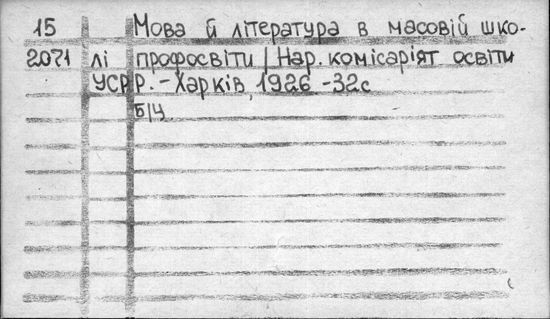 15 Мова й література в масовій шко-
2071 лі профосвіти / Нар. комісаріят освіти
УСРР. - Харків, 1926 - 32с
б/ц